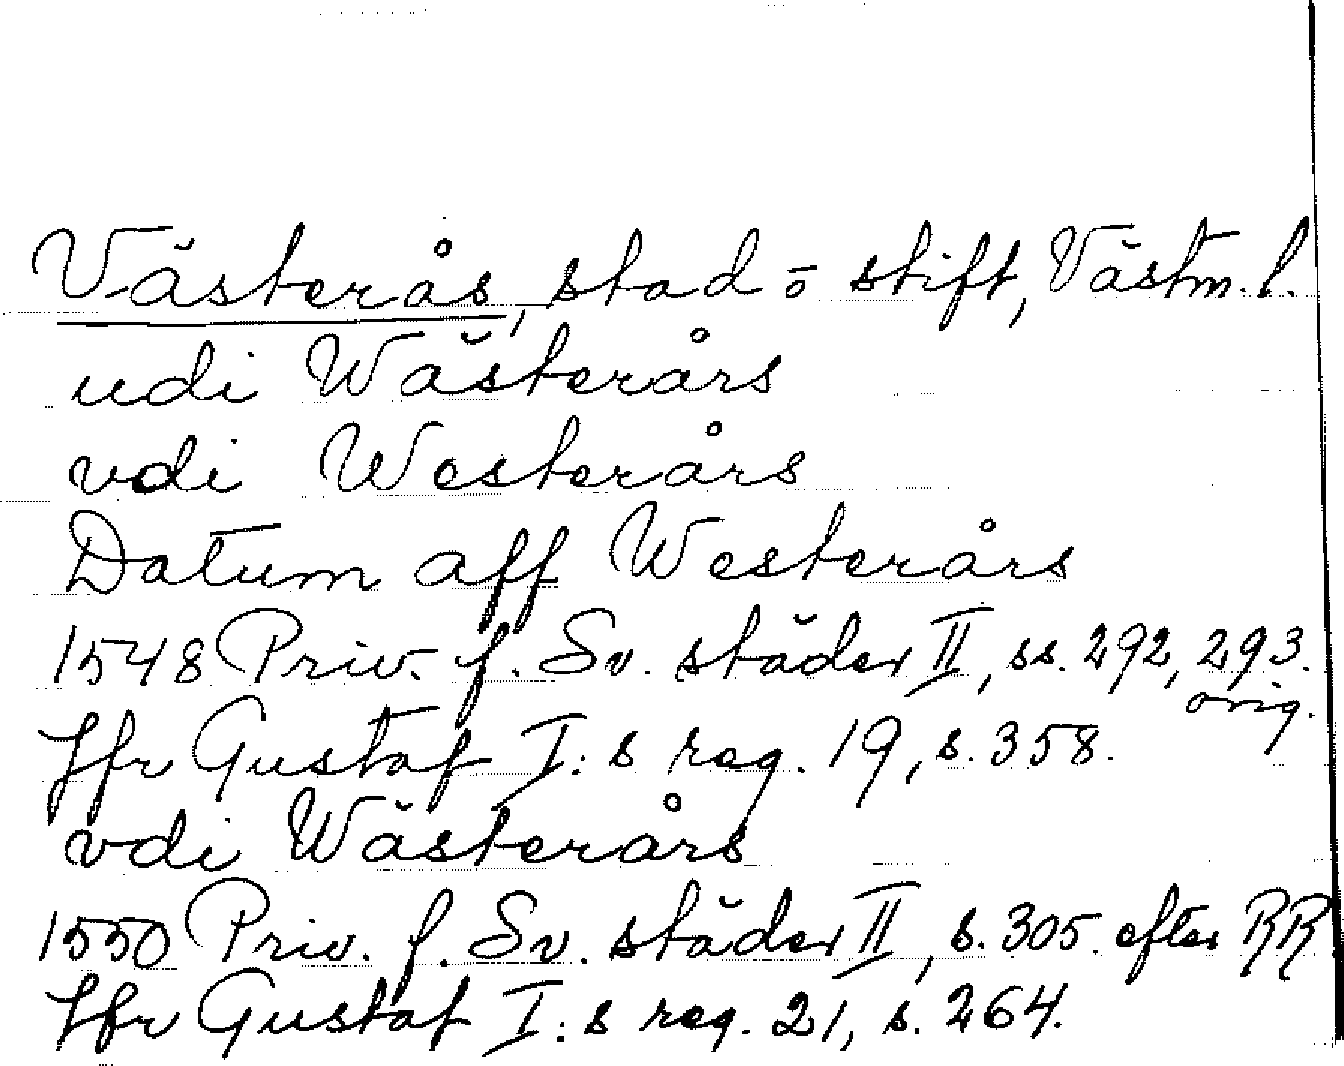 Västerås, stad o stift, Västm. l.
udi Wästerårs
vdi Westerårs
Datum aff Westerårs
1548 Priv. f. Sv. städer II, ss. 292, 293.
orig.
Jfr Gustaf I:s reg. 19, s. 358.
vdi Wästerårs
1550 Priv. f. Sv. städer II, s. 305. efter RR
Jfr Gustaf I:s reg. 21, s. 264.